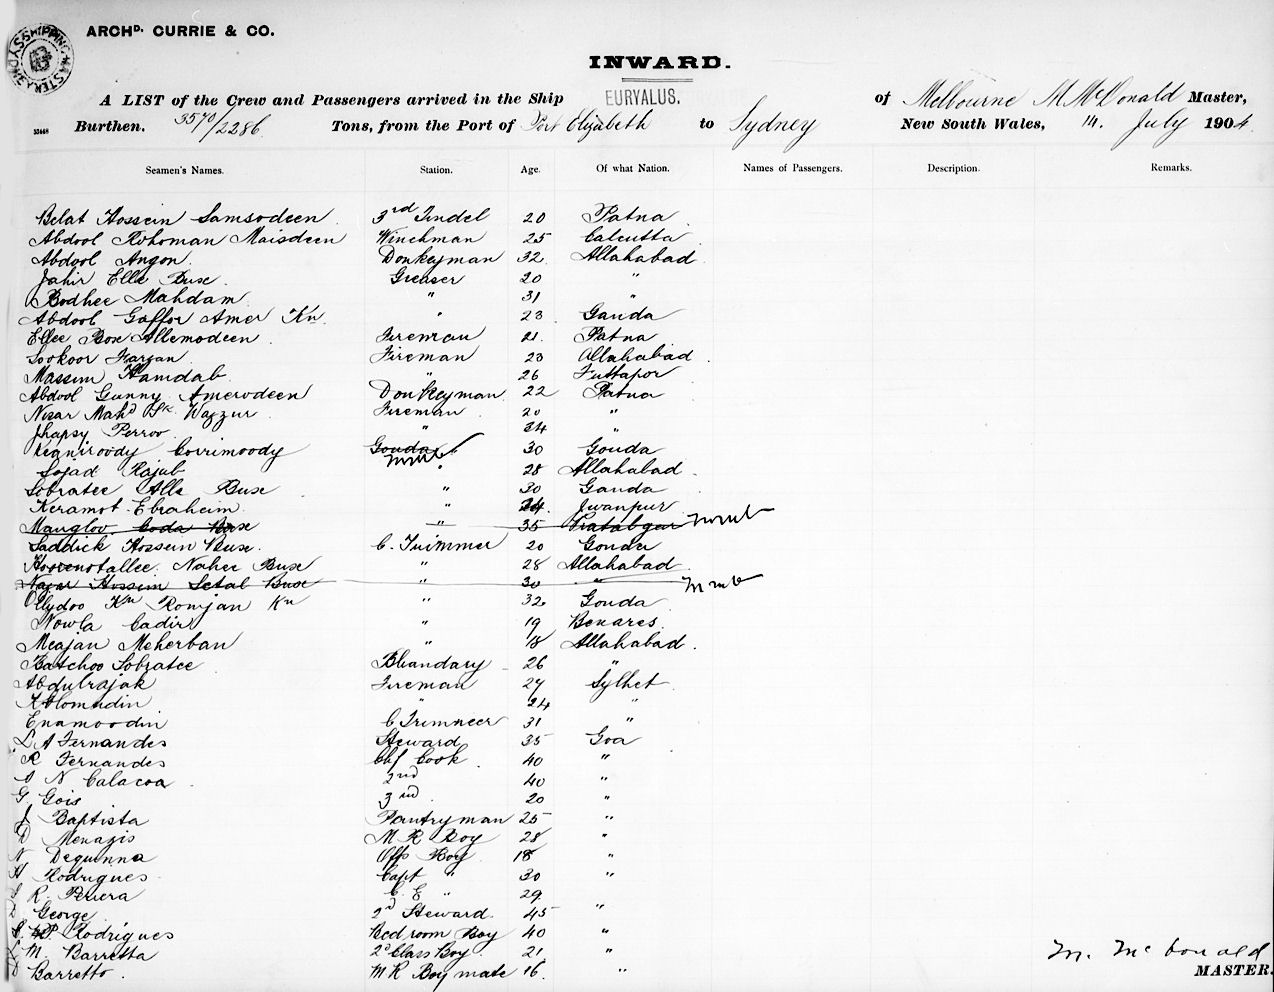 ARCHD. CURRIE & CO.
SYDNEY SHIPPING MASTER
INWARD.
A LIST of the Crew and Passengers arrived in the Ship EURYALUS. of Melbourne M McDonald Master,
53448 Burthen. 3570/2286 Tons, from the Port of Port Elizabeth to Sydney New South Wales, 14. July 1904
Seamen's Names. Station. Age. Of what Nation. Names of Passengers. Description. Remarks.
Belat Hossein Samsodeen 3rd Tindel 20 Patna
Abdool Rohoman Maisdeen Winchman 25 Calcutta
Abdool Angon Donkeyman 32 Allahabad
Jahir Elle Buse Greaser 20 "
Bodhee Mahdam " 31 "
Abdool Gaffor Amer Kn " 23 Ganda
Ellee Box Allemodeen Fireman 21 Patna
Sookoor Farzan Fireman 23 Allahabad
Massim Hamdab " 26 Futtapor
Abdool Gunny Amerodeen Donkeyman 22 Patna
Nisar Mahd Sk Wazzur Fireman 20 "
Jhapsy Perroo " 34 "
Corrimoody Gouda 30 Gouda
Sojad Rajub " 28 Allahabad
Sobratee Alla Buse " 30 Ganda
Keramot Ebraheim " 24 Jwanpur
Manglov Coda Buse " 35
Saddick Hossein Buse C. Trimmer 20 Gonda
Naher Buse " 28 Allahabad
Hossim Setal Buse " 30 "
Ollydoo Kn Romjan Kn " 32 Gouda
Nowla Cadir " 19 Benares
Meajan Meherban " 18 Allahabad
Batchoo Sobratee Bhandary 26 "
Abdulrajak Fireman 27 Sylhet
" 24 "
Enamoodin C Trimmeer 31 "
L A Fernandes Steward 35 Goa
R Fernandes Chf Cook 40 "
N Calacoa 2nd 40 "
G Gois 3rd 20 "
J Baptista Pantryman 25 "
D Menazis M R Boy 28 "
N Dequnna Offs Boy 18 "
H Rodrigues Capt " 30 "
R. Perera C. E " 29
George 2d Steward 45 "
Rodrigues Bedroom Boy 40 "
M. Barretta 2d Class Boy 21 "
Barretto M R Boy mate 16 "
M. McDonald
MASTER.